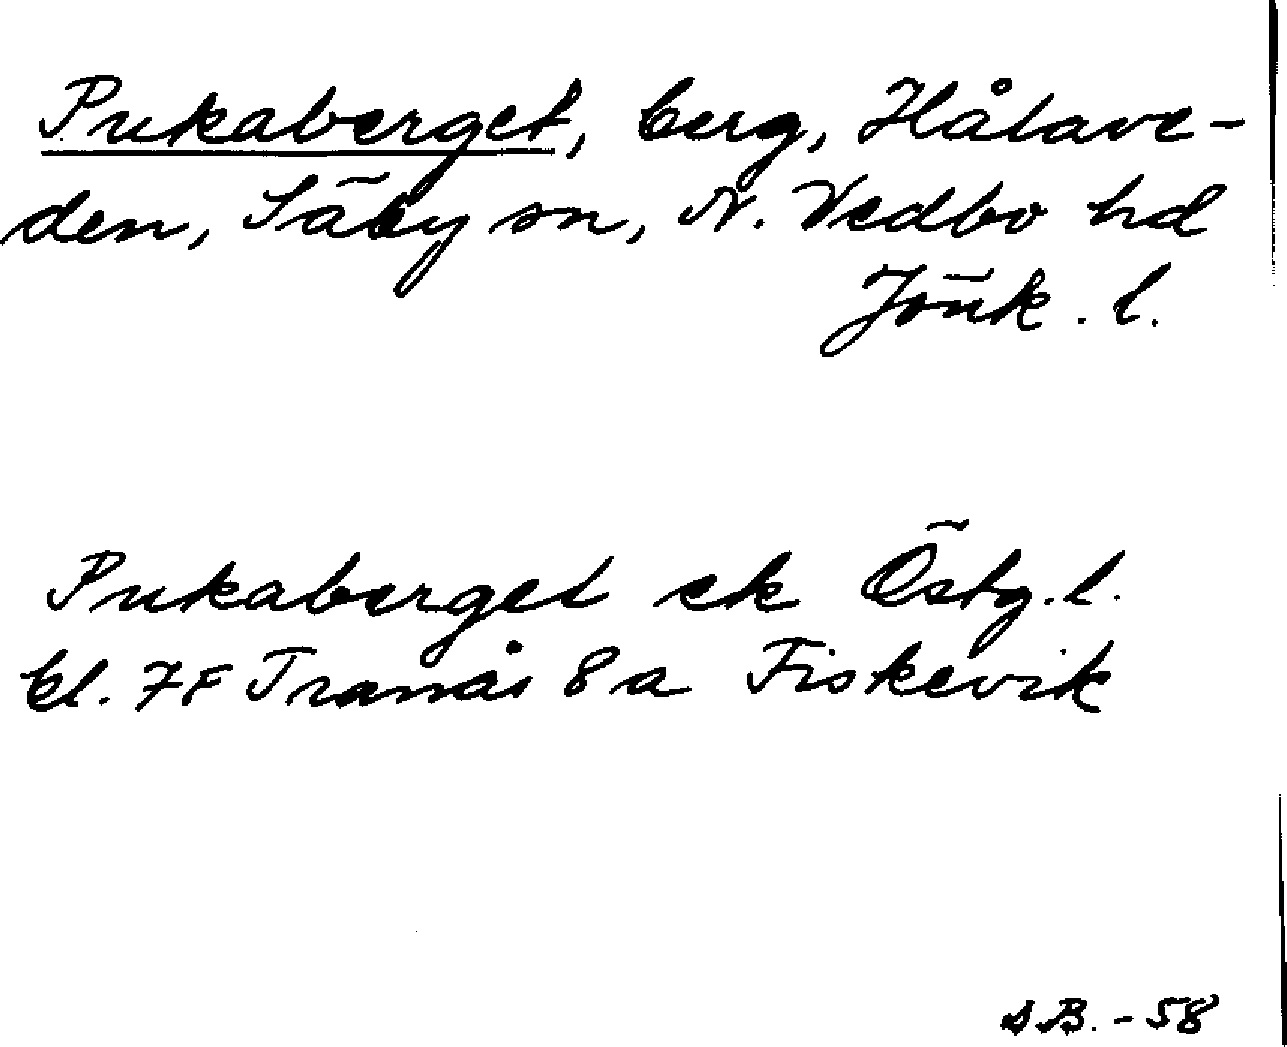 Pukaberget, berg, Hålave-
den, Säby sn, N. Vedbo hd
Jönk. l.
Pukaberget ek Östg. l.
kl. 7F Tranås 8a Fiskevik
SB. - 58